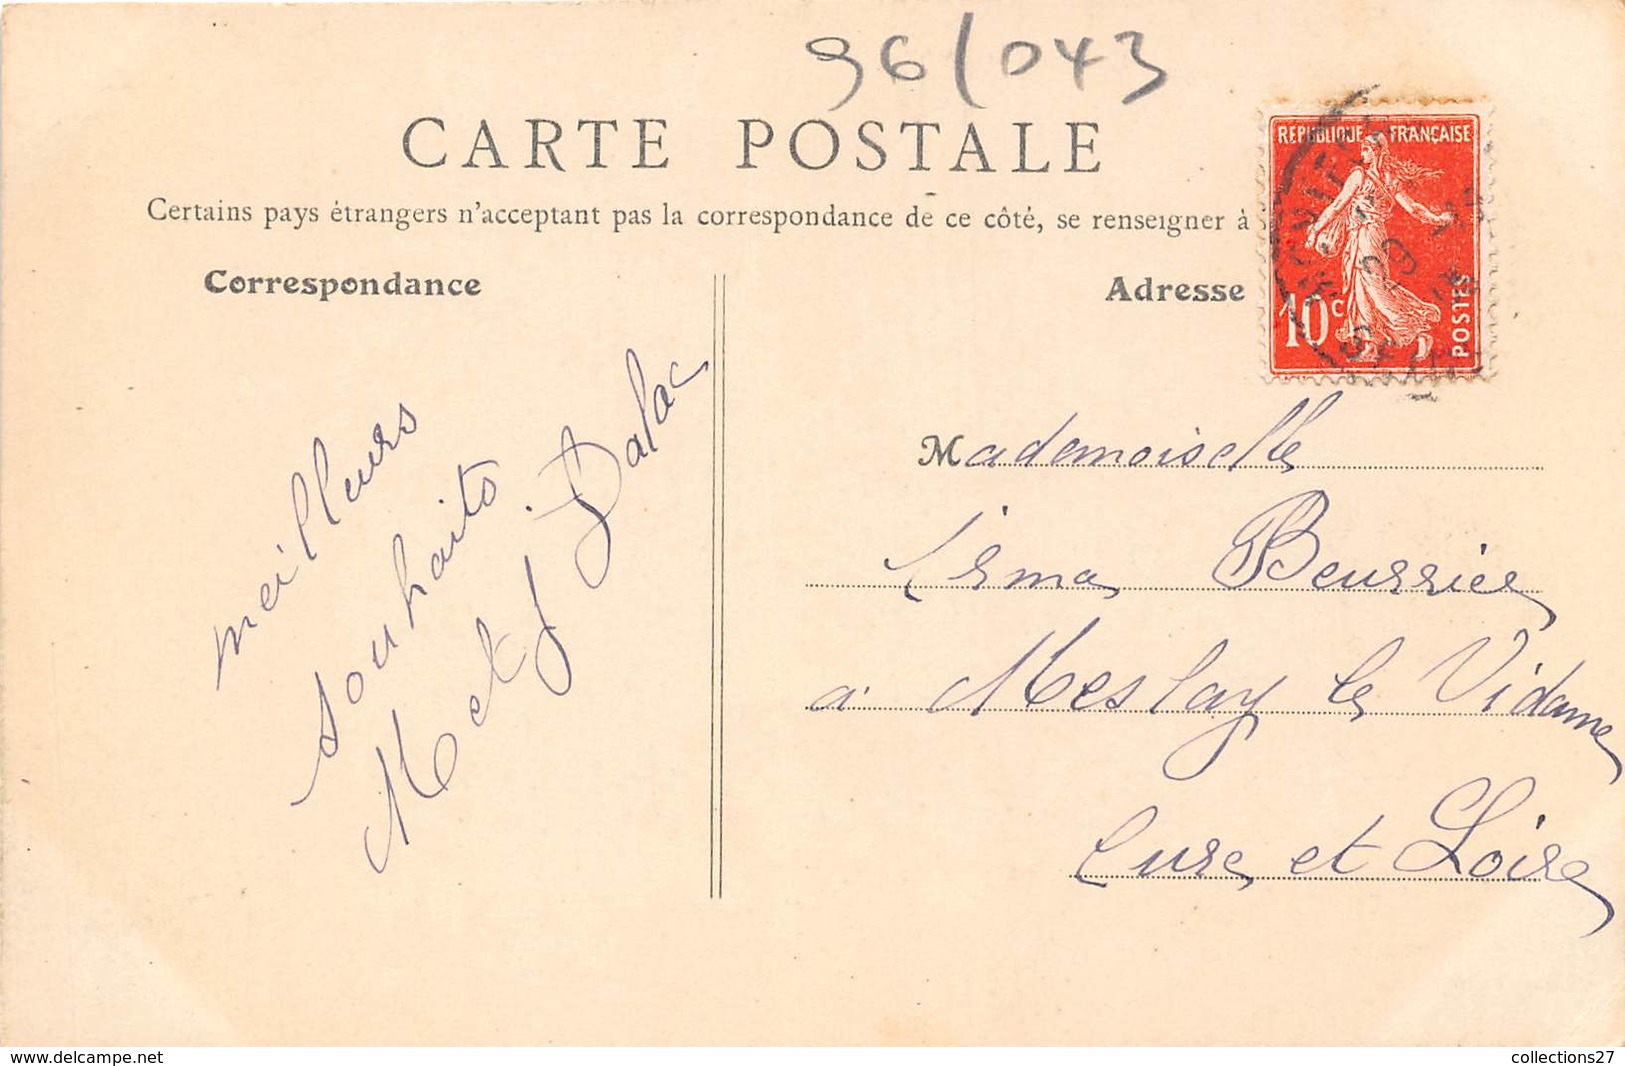 96/043
CARTE POSTALE
Certains pays étrangers n'acceptent pas la correspondance de ce côté, se renseigner à
Correspondance
Adresse
REPUBLIQUE FRANÇAISE
10c
POSTES
meilleurs
souhaits
M et J Dalac
Mademoiselle
Irma Beurrier
a Meslay le Vidame
Eure et Loire
www.delcampe.net
collections27